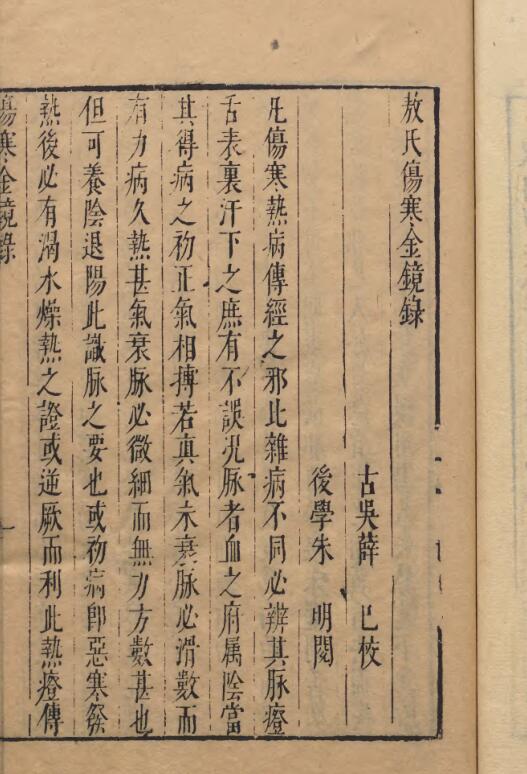 敖氏傷寒金鏡錄
古吳薛　己校
後學朱　明閱
凡傷寒熱病傳經之邪比雜病不同必辨其脉證
舌表裏汗下之庶有不誤况脉者血之府属陰當
其得病之初正氣相摶若真氣未衰脉必滑數而
有力病久熱甚氣衰脉必微細而無力方數甚也
但可養陰退陽此識脉之要也或初病卽惡寒發
熱後必有渴水燥熱之證或逆厥而利此熱證傳
傷寒金鏡錄
一